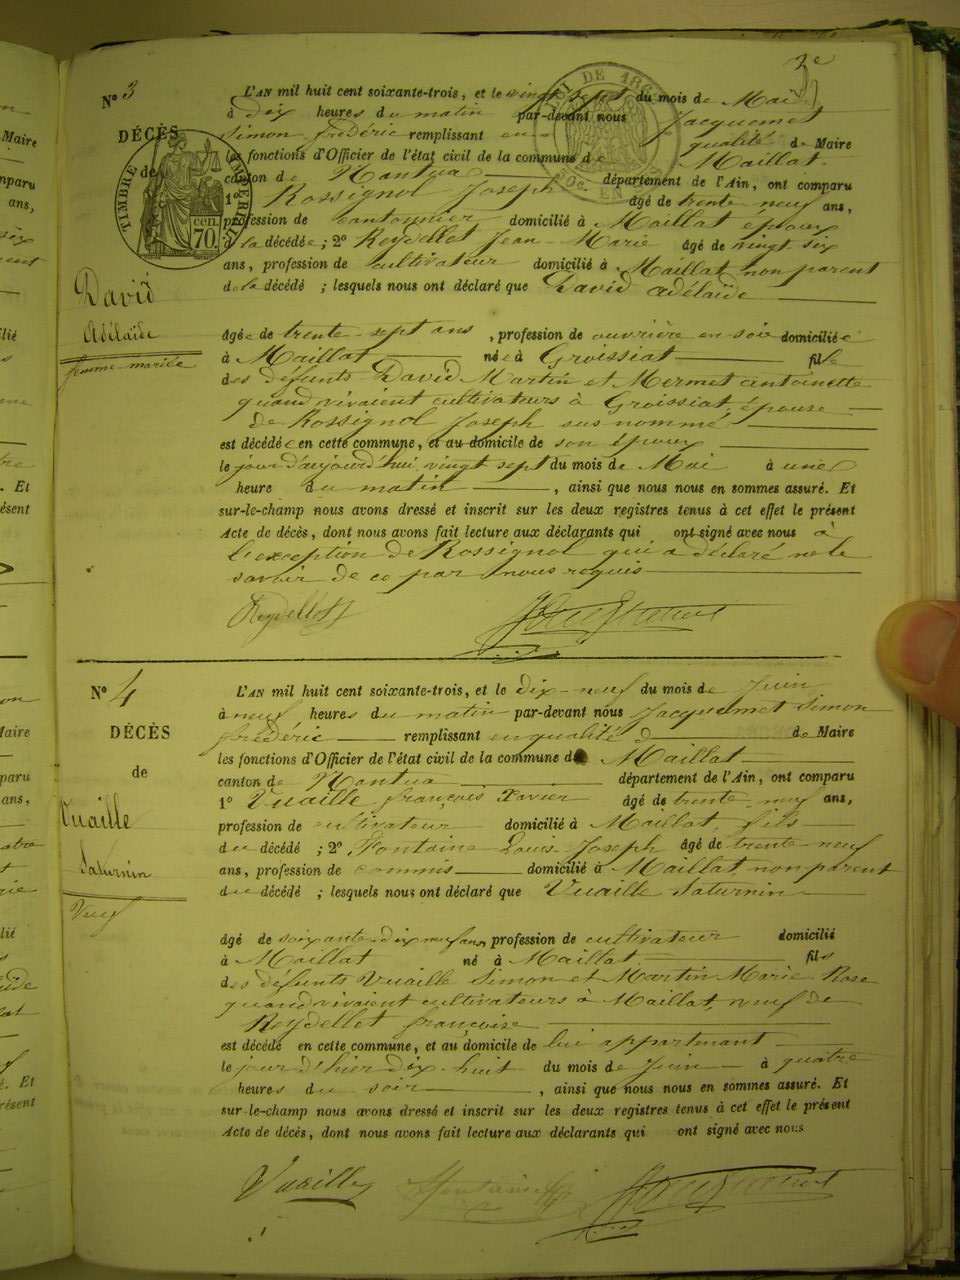 3e
N° 3
DÉCÈS
de
TIMBRE IMPERIAL
cen. 70.
David
Adélaïde
femme mariée
L'AN mil huit cent soixante-trois, et le vingt sept du mois de Mai
à dix heures du matin par-devant nous Jacquemet
Simon frédéric remplissant en qualité de Maire
les fonctions d'Officier de l'état civil de la commune de Maillat
canton de Nantua département de l'Ain, ont comparu
1° Rossignol Joseph âgé de trente neuf ans,
profession de cantonnier domicilié à Maillat époux
de la décédée ; 2° Reydellet Jean-Marie âgé de vingt six
ans, profession de cultivateur domicilié à Maillat non parent
de la décédé ; lesquels nous ont déclaré que David adélaïde
âgée de trente-sept ans , profession de ouvrière en soie domicilié e
à Maillat née à Groissiat fille
des défunts David Martin et Mermet antoinette
quand vivaient cultivateurs à Groissiat, épouse
de Rossignol Joseph sus nommé
est décédée en cette commune, et au domicile de son époux
le jour d'aujourd'hui vingt sept du mois de Mai à une
heure du matin , ainsi que nous nous en sommes assuré. Et
sur-le-champ nous avons dressé et inscrit sur les deux registres tenus à cet effet le présent
Acte de décès, dont nous avons fait lecture aux déclarants qui ont signé avec nous à
l'exception de Rossignol qui a déclaré ne le
savoir de ce par nous requis
Reydellet Jacquemet
N° 4
DÉCÈS
de
Vuaille
Saturnin
Veuf
L'AN mil huit cent soixante-trois, et le dix-neuf du mois de Juin
à neuf heures du matin par-devant nous Jacquemet Simon
frédéric remplissant en qualité d de Maire
les fonctions d'Officier de l'état civil de la commune de Maillat
canton de Nantua département de l'Ain, ont comparu
1° Vuaille françois Xavier âgé de trente-neuf ans,
profession de cultivateur domicilié à Maillat, fils
du décédé ; 2° Fontaine Louis-Joseph âgé de trente-neuf
ans, profession de commis domicilié à Maillat, non parent
du décédé ; lesquels nous ont déclaré que Vuaille Saturnin
âgé de soixante-dix neuf ans, profession de cultivateur domicilié
à Maillat né à Maillat fils
des défunts Vuaille Simon et Martin Marie Rose
quand vivaient cultivateurs à Maillat, veuf de
Reydellet françoise
est décédé en cette commune, et au domicile de lui appartenant
le jour d'hier dix-huit du mois de Juin à quatre
heures du soir , ainsi que nous nous en sommes assuré. Et
sur-le-champ nous avons dressé et inscrit sur les deux registres tenus à cet effet le présent
Acte de décès, dont nous avons fait lecture aux déclarants qui ont signé avec nous
Vuaille Fontaine Jacquemet